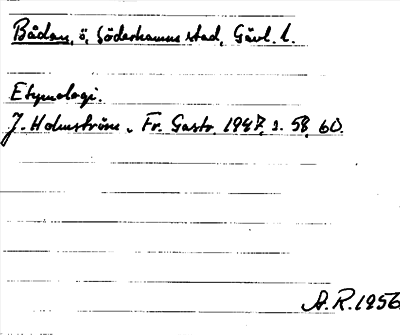 Bådan, ö, Söderhamns stad, Gävl. l.
Etymologi.
J. Holmström i Fr. Gästr. 1947, s. 58, 60.
A. R. 1956